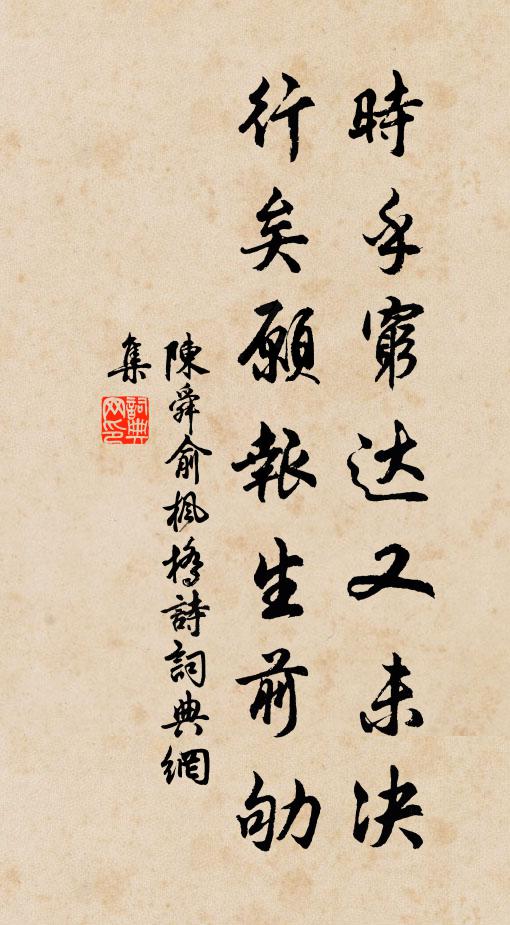 時乎窮达又未决
行矣願報生前劬
陳舜俞楓橋詩詞典網
集
詞典网印